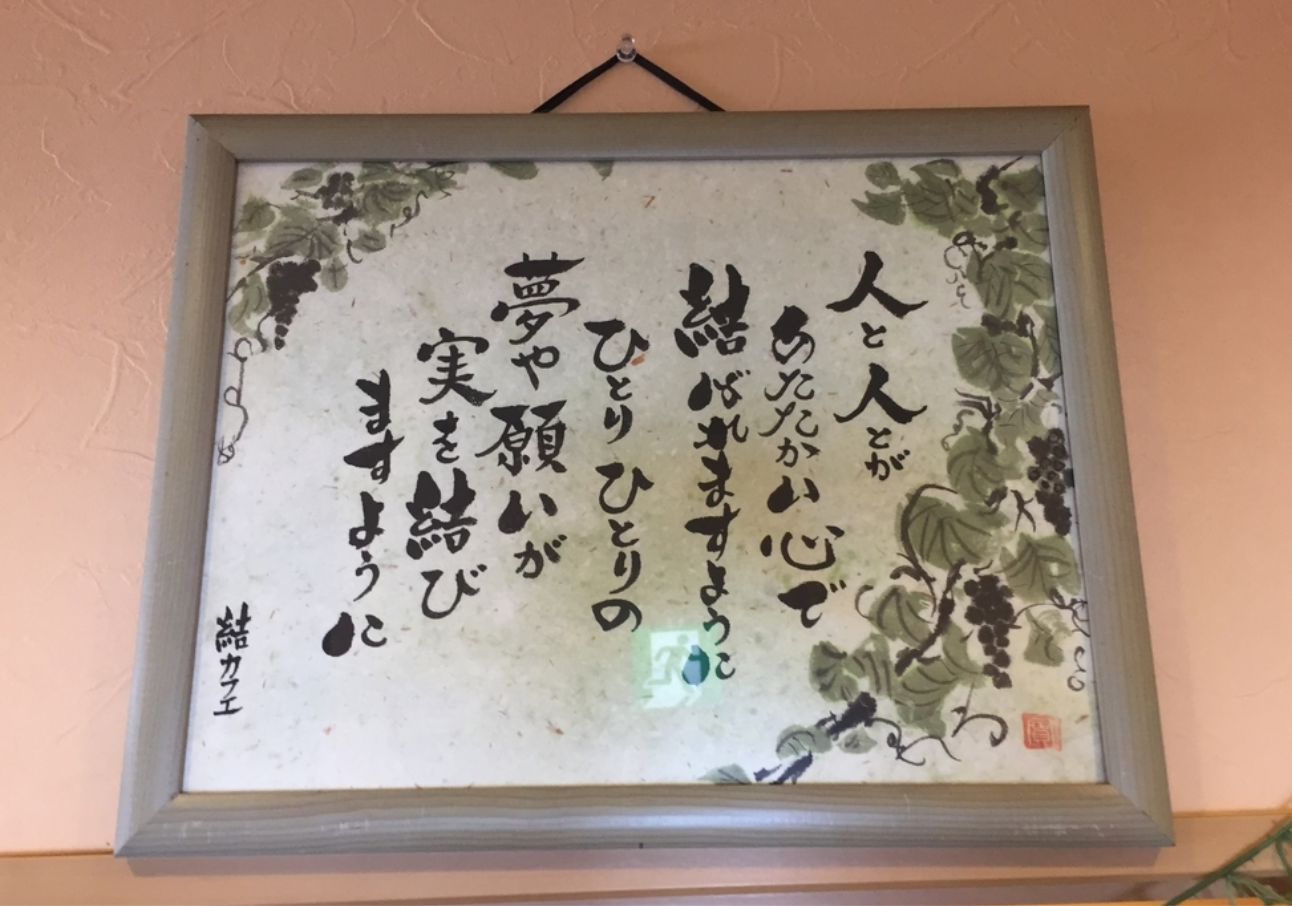 人と人とが
あたたかい心で
結ばれますように
ひとりひとりの
夢や願いが
実を結び
ますように
結カフェ